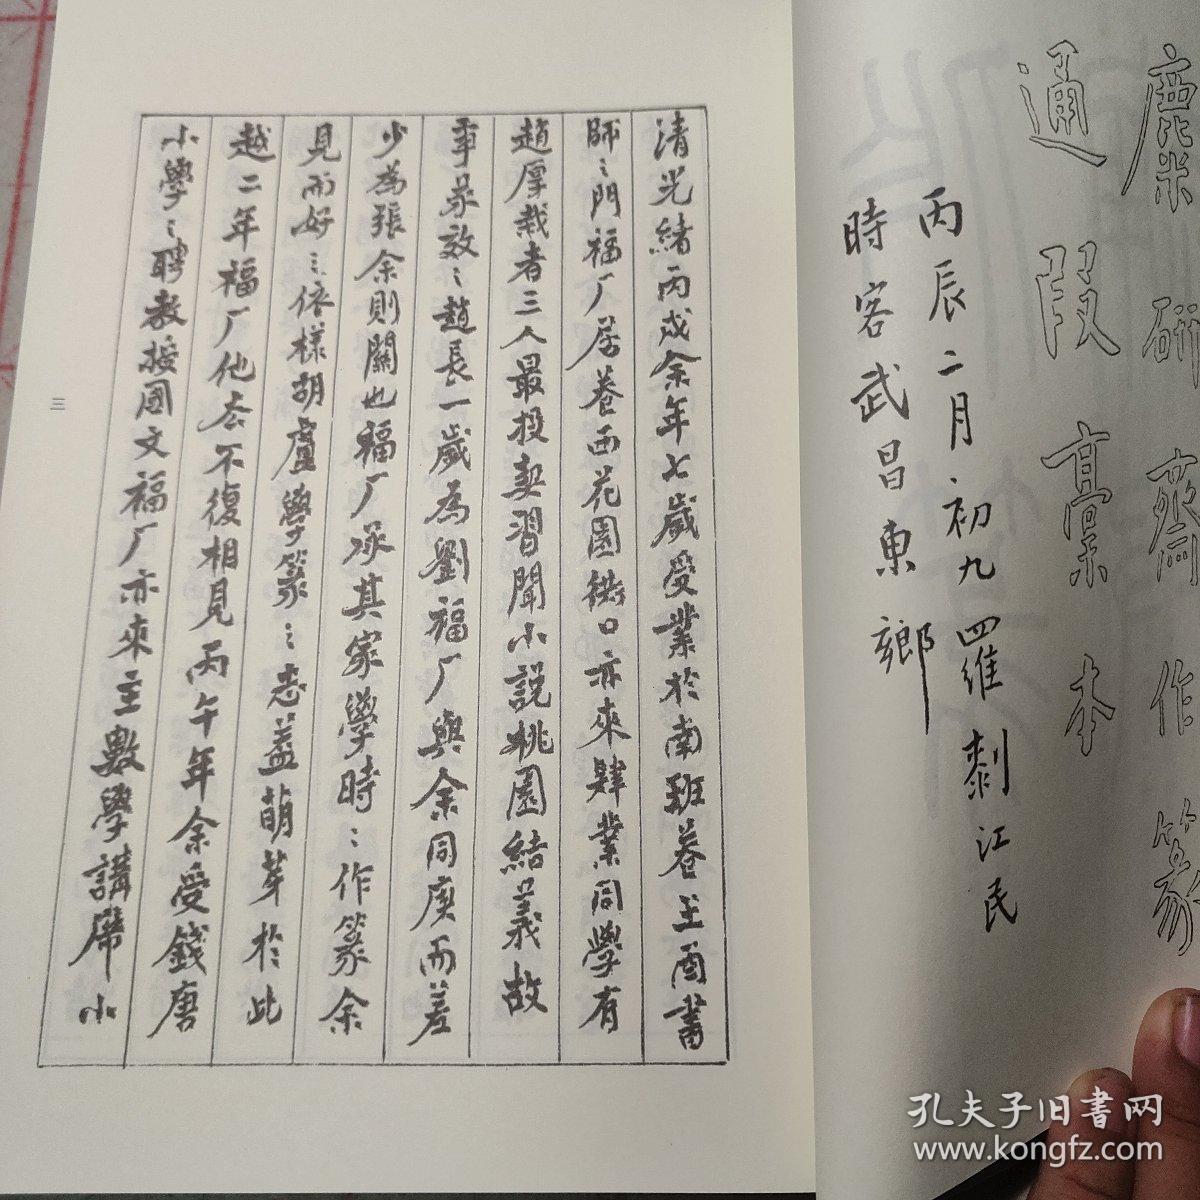 麋研齋作篆
通叚稾本
丙辰二月初九四維剌江民
時客武昌東鄉
清光緒丙戌余年七歲受業於南班巷王酉書
師〻門福厂居巷西花園衖口亦來肄業同學有
趙厚栽者三人最投契習聞小說桃園結義故
事篆效〻趙長一歲為劉福厂與余同庚而差
少為張余則關也福厂承其家學時〻作篆余
見而好〻依樣胡盧學篆〻志蓋萌芽於此
越二年福厂他去不復相見丙午年余受錢唐
小學〻聘教授國文福厂亦來主數學講席小
三
孔夫子旧書网
www.kongfz.com